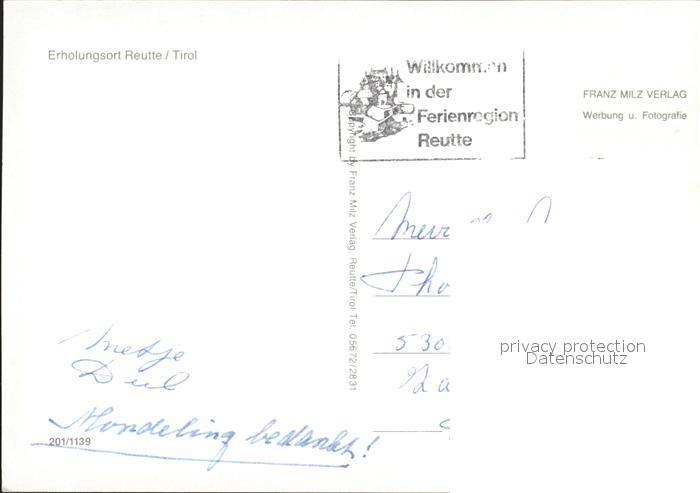 Erholungsort Reutte / Tirol
Willkommen
in der
Ferienregion
Reutte
FRANZ MILZ VERLAG
Werbung u. Fotografie
Copyright by Franz Milz Verlag, Reutte/Tirol Tel. 05672/2831
Mevr
530
privacy protection
Datenschutz
Mondeling bedankt!
201/1139